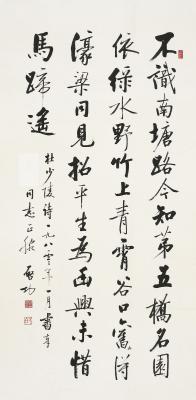 不識南塘路今知第五橋名園
依綠水野竹上青霄谷口舊得
濠梁同見招平生為幽興未惜
馬蹄遙
杜少陵詩一九八〇年一月書奉
同志正腕 啟功